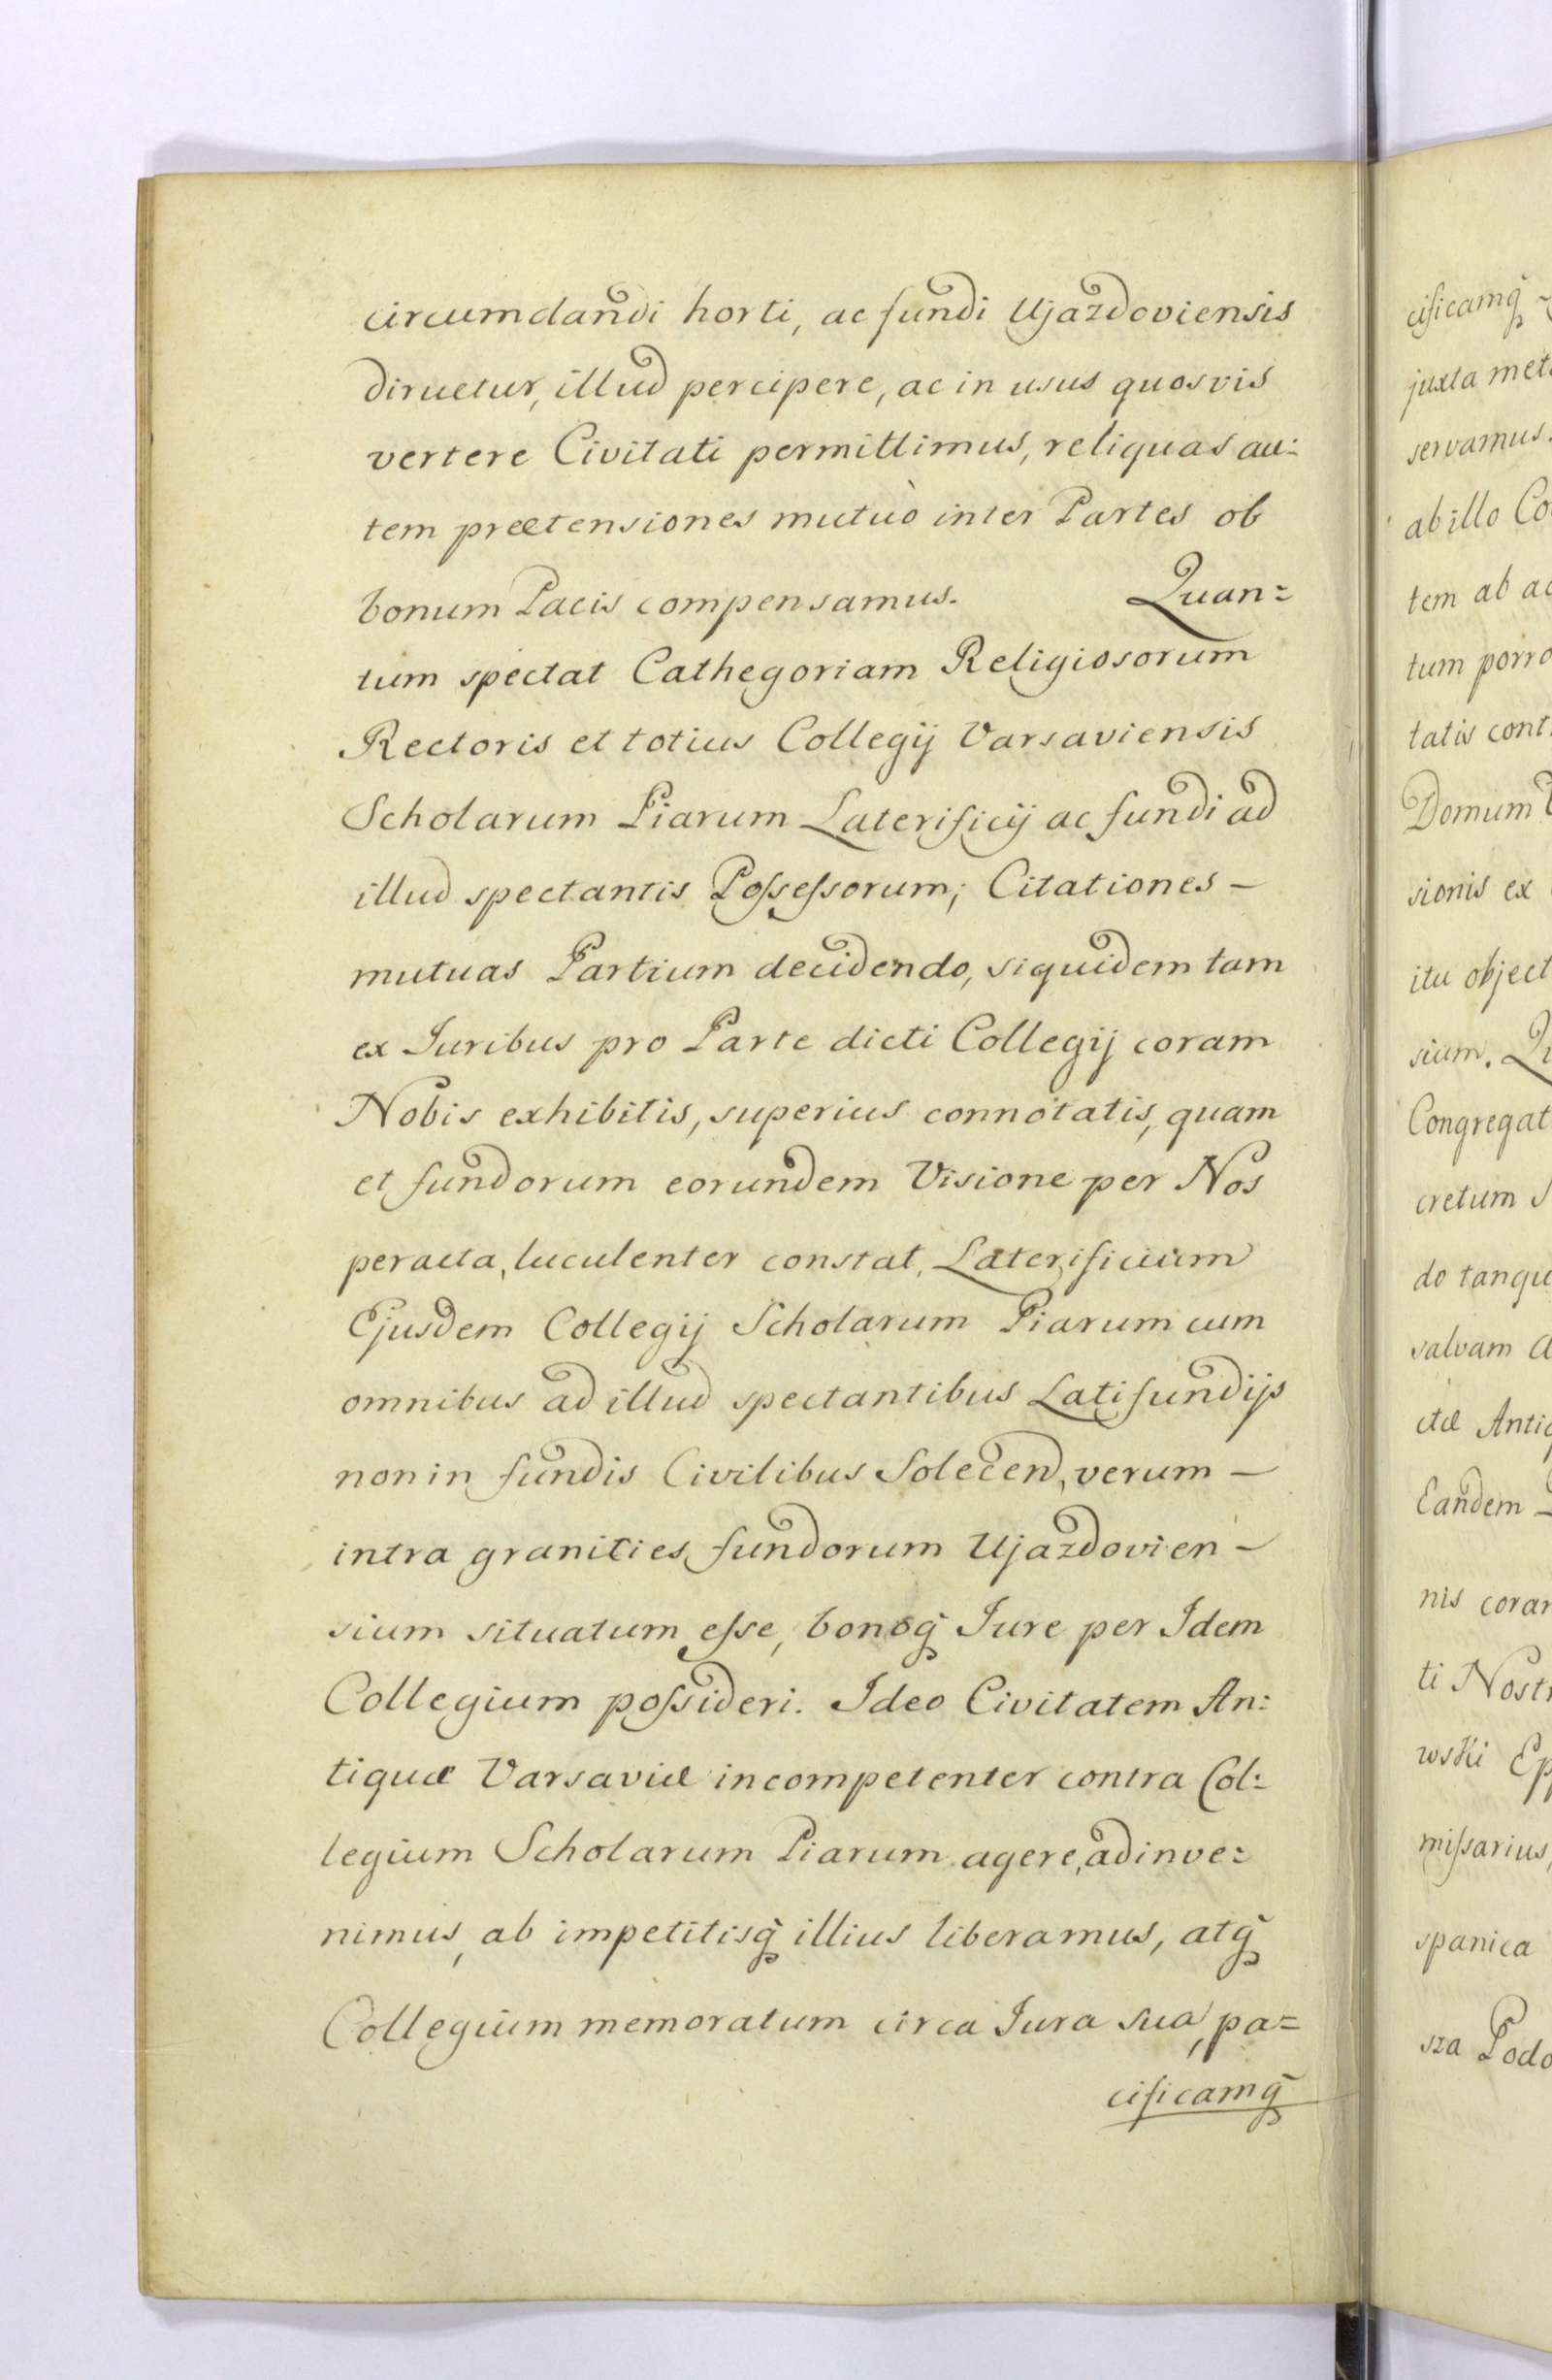 circumdandi horti, ac fundi Ujazdoviensis
diruetur, illud percipere, ac in usus quosvis
vertere Civitati permittimus, reliquas au:
tem prætensiones mutuò inter Partes ob
bonum Pacis compensamus. Quan=
tum spectat Cathegoriam Religiosorum
Rectoris et totius Collegij Varsaviensis
Scholarum Piarum Laterificij ac fundi ad
illud spectantis Poſseſsorum; Citationes –
mutuas Partium decidendo, siquidem tam
ex Juribus pro Parte dicti Collegij coram
Nobis exhibitis, superius connotatis, quam
et fundorum eorundem Visione per Nos
peracta, luculenter constat, Laterificium
Ejusdem Collegij Scholarum Piarum cum
omnibus ad illud spectantibus Latifundijs
non in fundis Civilibus Solecen, verum –
intra granities fundorum Ujazdovien –
sium situatum eſse, bonoq̃ Jure per Idem
Collegium poſsideri. Ideo Civitatem An:
tiquæ Varsaviæ incompetenter contra Col:
legium Scholarum Piarum agere, adinve:
nimus, ab impetitisq̃ illius liberamus, atq̃
Collegium memoratum circa Jura sua, pa=
cificamq̃
cificamq̃
juxta met
servamus.
ab illo Co
tem ab ac
tum porro
tatis cont
Domum
sionis ex
itu object
sium. Qu
Congregat
cretum S
do tanqu
salvam
ctæ Antiq
Eandem
nis coram
ti Nostr
wski Ep
miſsarius,
spanica
sza Podo